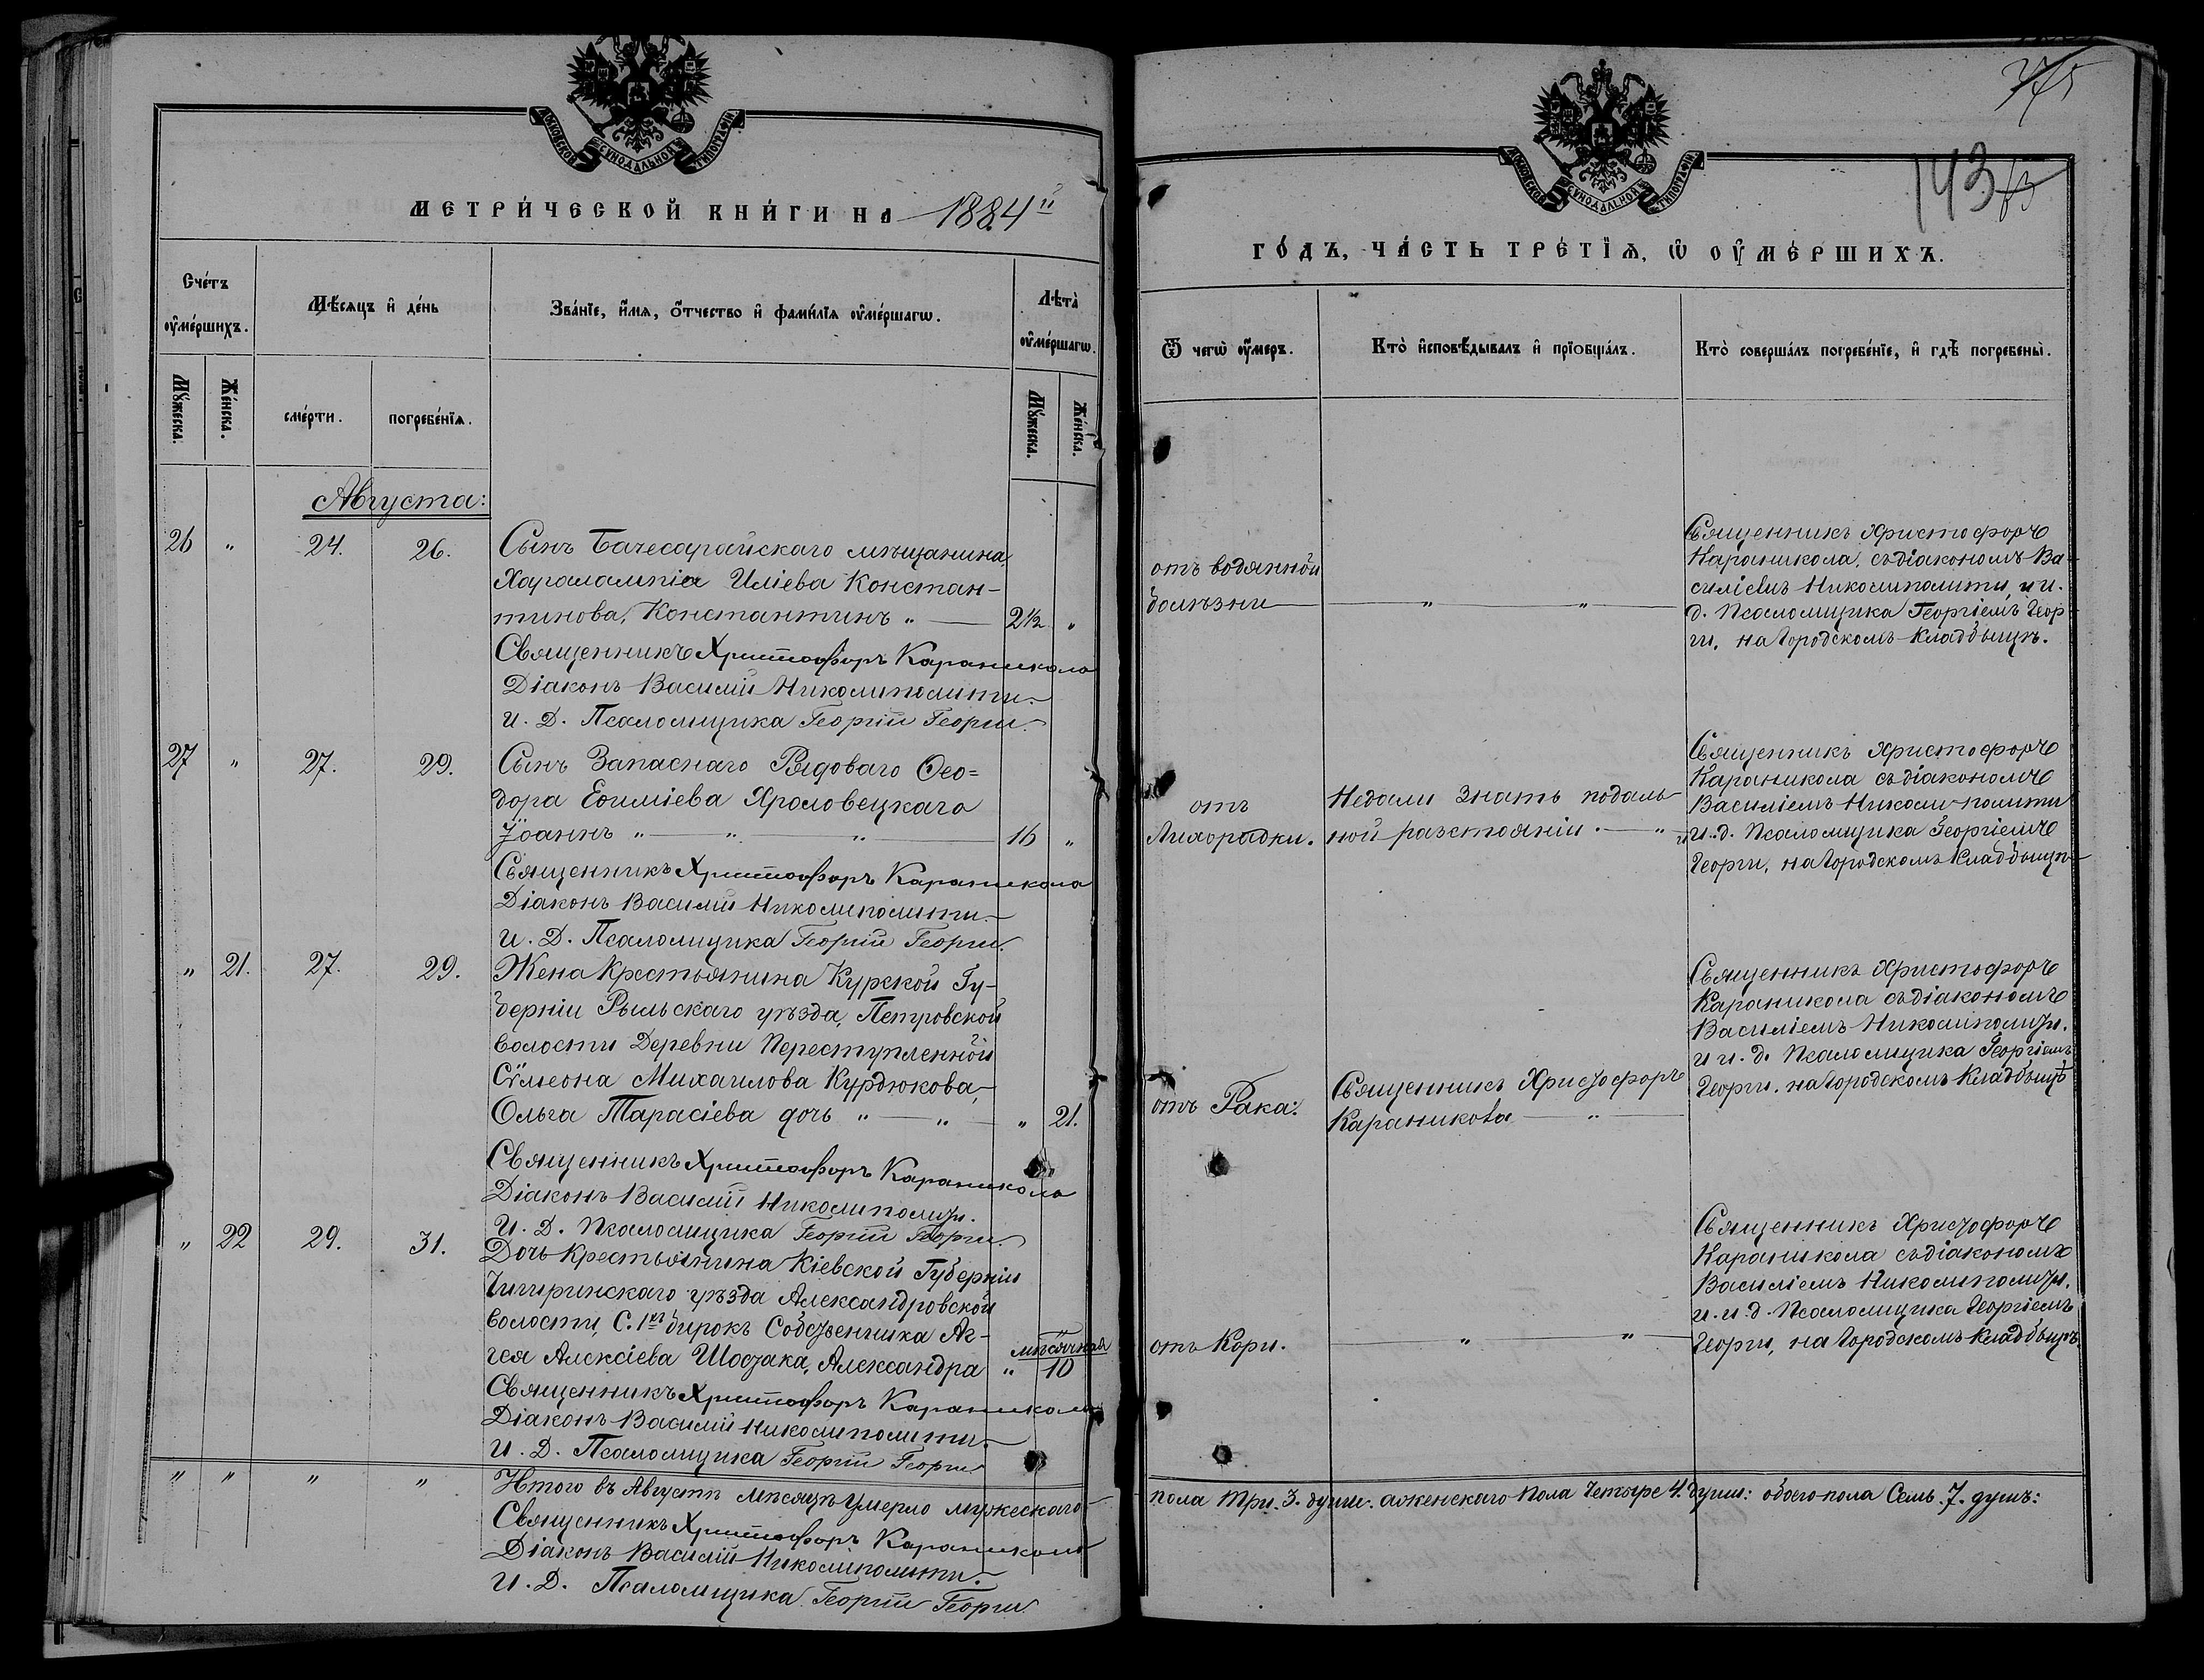 МЕТРИЧЕСКОЙ КНИГИ НА 1884й
Счетъ оумершихъ.
Мѣсяцъ и день
Званіе, имя, отчество и фамилія оумершагѡ.
Лѣта оумершагѡ.
Мужеска.
Женска.
смерти.
погребенія.
Мужеска.
Женска.
Августа:
26 " 24. 26. Сынъ Бачесарайскаго мѣщанина
Харалампія Иліева Констан-
тинова, Константинъ " 2½ "
Священникъ Христофоръ Караникола
Діаконъ Василій Николиполити.
И. Д. Псаломщика Георгій Георги.
27 " 27. 29. Сынъ Запаснаго Рядоваго Ѳео=
дора Евѳиміева Яроловецкаго
Іоаннъ " " " 16 "
Священникъ Христофоръ Караникола
Діаконъ Василій Николиполити.
И. Д. Псаломщика Георгій Георги.
" 21. 27. 29. Жена Крестьянина Курской Гу-
берніи Рыльскаго уѣзда, Петровской
волости Деревни Переступленной
Сѵмеона Михаилова Курдюкова,
Ольга Тарасіева дочь " " " 21.
Священникъ Христофоръ Караникола
Діаконъ Василій Николиполити.
И. Д. Псаломщика Георгій Георги.
" 22 29. 31. Дочь Крестьянина Кіевской Губерніи
Чигиринскаго уѣзда Александровской
волости, С. бирокъ Собственника Аг-
гея Алексіева Шостака, Александра " мѣсячная 10
Священникъ Христофоръ Караникола
Діаконъ Василій Николиполити.
И. Д. Псаломщика Георгій Георги
" " " " Итого въ Августѣ мѣсяцѣ умерло мужескаго
Священникъ Христофоръ Караникола
Діаконъ Василій Николиполити.
И. Д. Псаломщика Георгій Георги
375
143
ГОДЪ, ЧАСТЬ ТРЕТІЯ, Ѡ ОУМЕРШИХЪ.
Ѿ чегѡ оумеръ.
Кто исповѣдывалъ и пріобщалъ.
Кто совершалъ погребеніе, и гдѣ погребены.
отъ водянной
болѣзни " "
Священникъ Христофоръ
Караникола, съ діакономъ Ва-
силіемъ Николиполити, и И.
д. Псаломщика Георгіемъ Геор
ги, на Городскомъ Кладбищѣ.
отъ
Лихорадки.
Недали знать подаль-
ной разстояніи. "
Священникъ Христофоръ
Караникола съ діакономъ
Василіемъ Николи-полити
и и. д. Псаломщика Георгіемъ
Георги, на Городскомъ Кладбищѣ
отъ Рака.
Священникъ Христофоръ
Караникова "
Священникъ Христофоръ
Караникола съ діакономъ
Василіемъ Николиполити.
и и. д. Псаломщика Георгіемъ
Георги, на Городскомъ Кладбищѣ
отъ Кори. " "
Священникъ Христофоръ
Караникола съ діакономъ
Василіемъ Николиполити,
и. и. д. Псаломщика Георгіемъ
Георги, на Городскомъ Кладбищѣ.
пола Три. 3. души. а женскаго Пола Четыре 4. души: обоего пола Семь. 7. душъ: